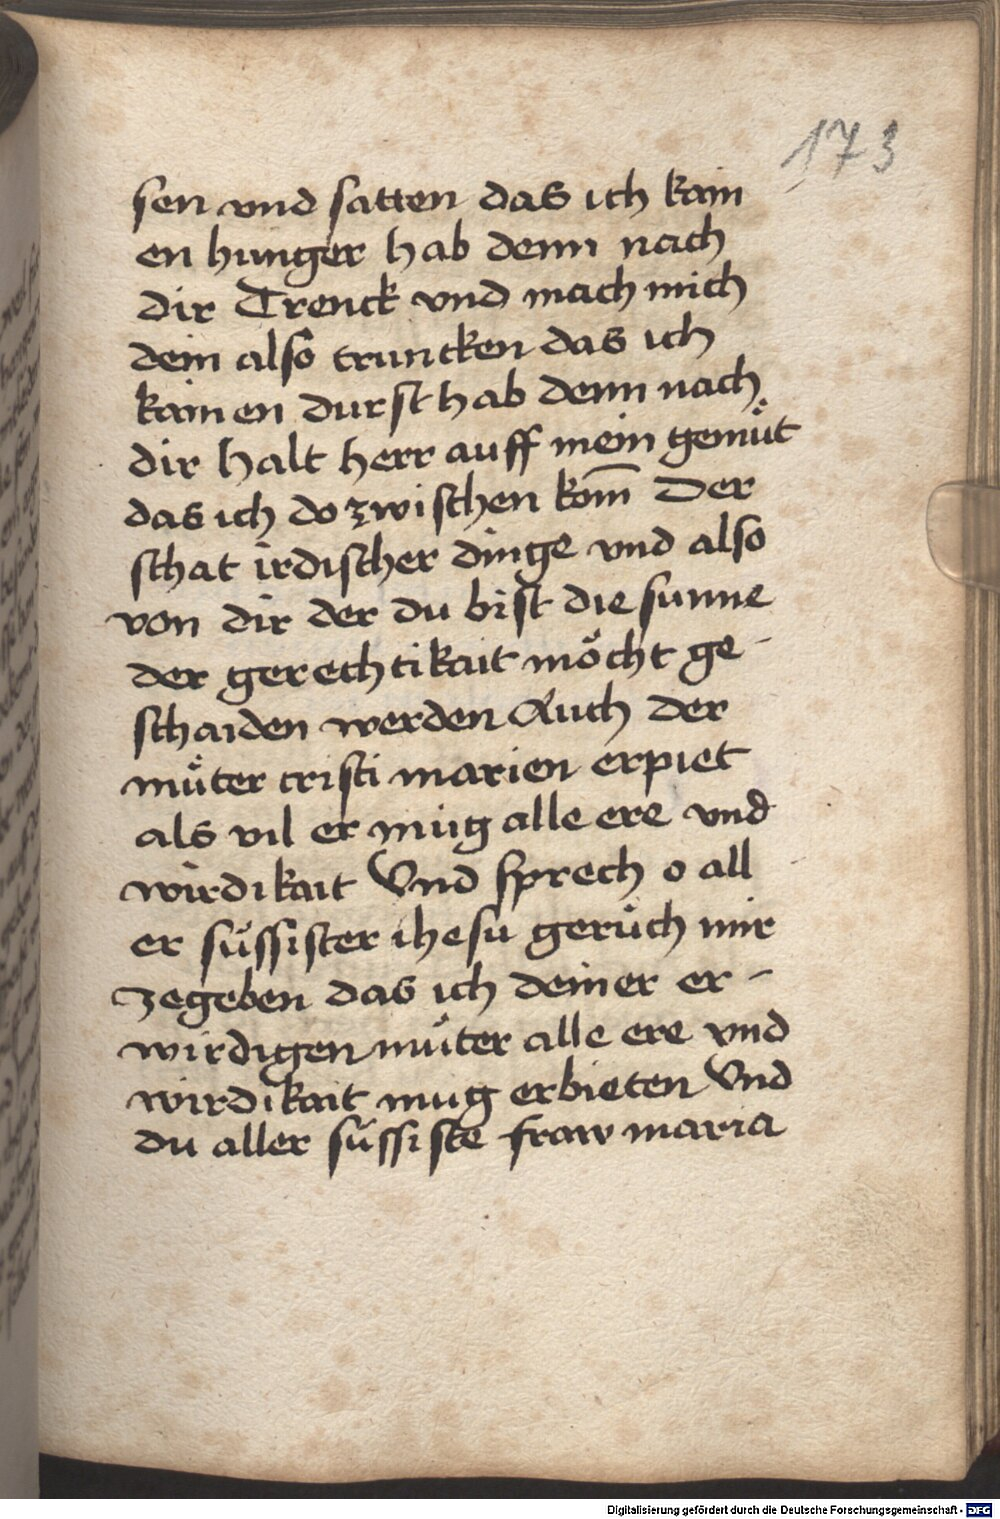 173
sen vnd satten das ich kain
en hunger hab denn nach
dir Trenck vnd mach mich
dein also truncken das ich
kainen durst hab denn nach
dir halt herr auff mein gemuͤt
das ich do zwischen kom̄ Der
schat irdischer dinge vnd also
von dir der du bist die sunne
der gerechtikait moͤcht ge-
schaiden werden Auch der
muͤter cristi marien erpiet
als vil er mug alle ere vnd
wirdikait Vnd sprech o all
er suͤssister ihesu geruͤch mir
zegeben das ich deiner er-
wirdigen muͤter alle ere vnd
wirdikait mug erbieten Vnd
du aller suͤssiste fraw maria
Digitalisierung gefördert durch die Deutsche Forschungsgemeinschaft - DFG